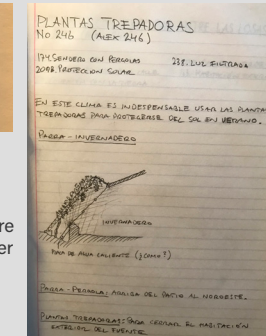 PLANTAS TREPADORAS
No 246 (ALEX 246)
174. SENDERO CON PERGOLAS 238. LUZ FILTRADA
PROTECCION SOLAR
EN ESTE CLIMA ES INDISPENSABLE USAR LAS PLANTA
TREPADORAS PARA PROTEGERSE DEL SOL EN VERANO.
PARRA - INVERNADERO
INVERNADERO
DE AGUA CALIENTE (¿COMO?)
PARRA - PERGOLA: ARRIBA DEL PATIO AL NOROESTE.
PLANTAS TREPADORAS: PARA CERRAR EL HABITACIÓN
EXTERIOR DEL FUENTE
re
er